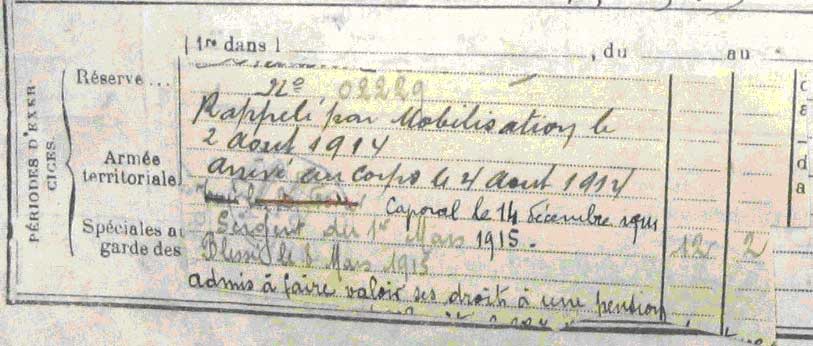 1re dans l , du au
Réserve ...
No 02229
Rappelé par Mobilisation le
2 Aout 1914
Armée territoriale
arrivé au corps le 4 Aout 1914
Caporal le 14 décembre
Sergent du 1er Mars 1915. 12 2
Spéciales au
garde des
Blessé le 8 Mars 1915
admis à faire valoir ses droit à une pension
PÉRIODES D'EXER-
CICES.